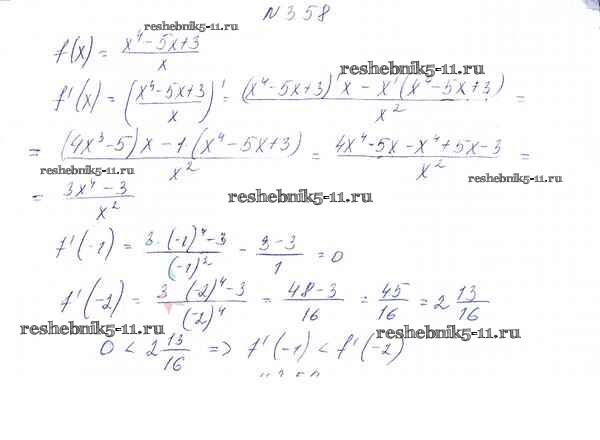 N 358
reshebnik5-11.ru
f(x) = (x⁴-5x+3)/x
reshebnik5-11.ru
f'(x) = ((x⁴-5x+3)/x)' = ((x⁴-5x+3)'x - x'(x⁴-5x+3))/x² =
= ((4x³-5)x - 1·(x⁴-5x+3))/x² = (4x⁴-5x-x⁴+5x-3)/x² =
reshebnik5-11.ru
reshebnik5-11.ru
= (3x⁴-3)/x²
reshebnik5-11.ru
f'(-1) = (3·(-1)⁴-3)/(-1)² - (3-3)/1 = 0
f'(-2) = (3 (-2)⁴-3)/(-2)⁴ = (48-3)/16 = 45/16 = 2 13/16
reshebnik5-11.ru
reshebnik5-11.ru
0 < 2 13/16 => f'(-1) < f'(-2)